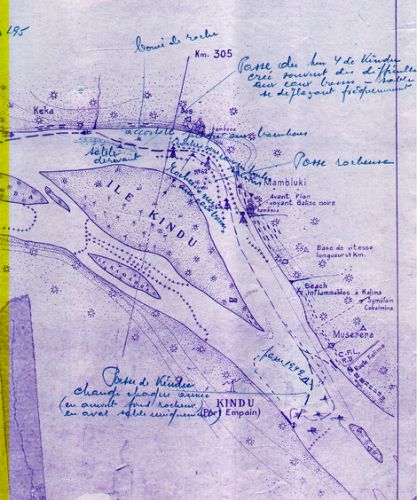 295
banc de roche
Km. 305
Passe du km 4 de Kindu
crée souvent des difficultés
aux eaux basses – sable
se déplaçant fréquemment
Keka
accostable aux bambous
bambous
sable
devant
Passe rocheuse
N°62
Mambluki
Avant Plan
voyant Balise noire
bambous
ILE KINDU
Base de vitesse
longueur ut Km.
Beach
inflammables à Kalima
Symétain
Cobelmine
Muserera
C.F.L.
R.D.
Route Kalima
passe 1959
Passe de Kindu
change chaque année
(en amont fond rocheux
en aval sable uniquement)
KINDU
(Port Empain)